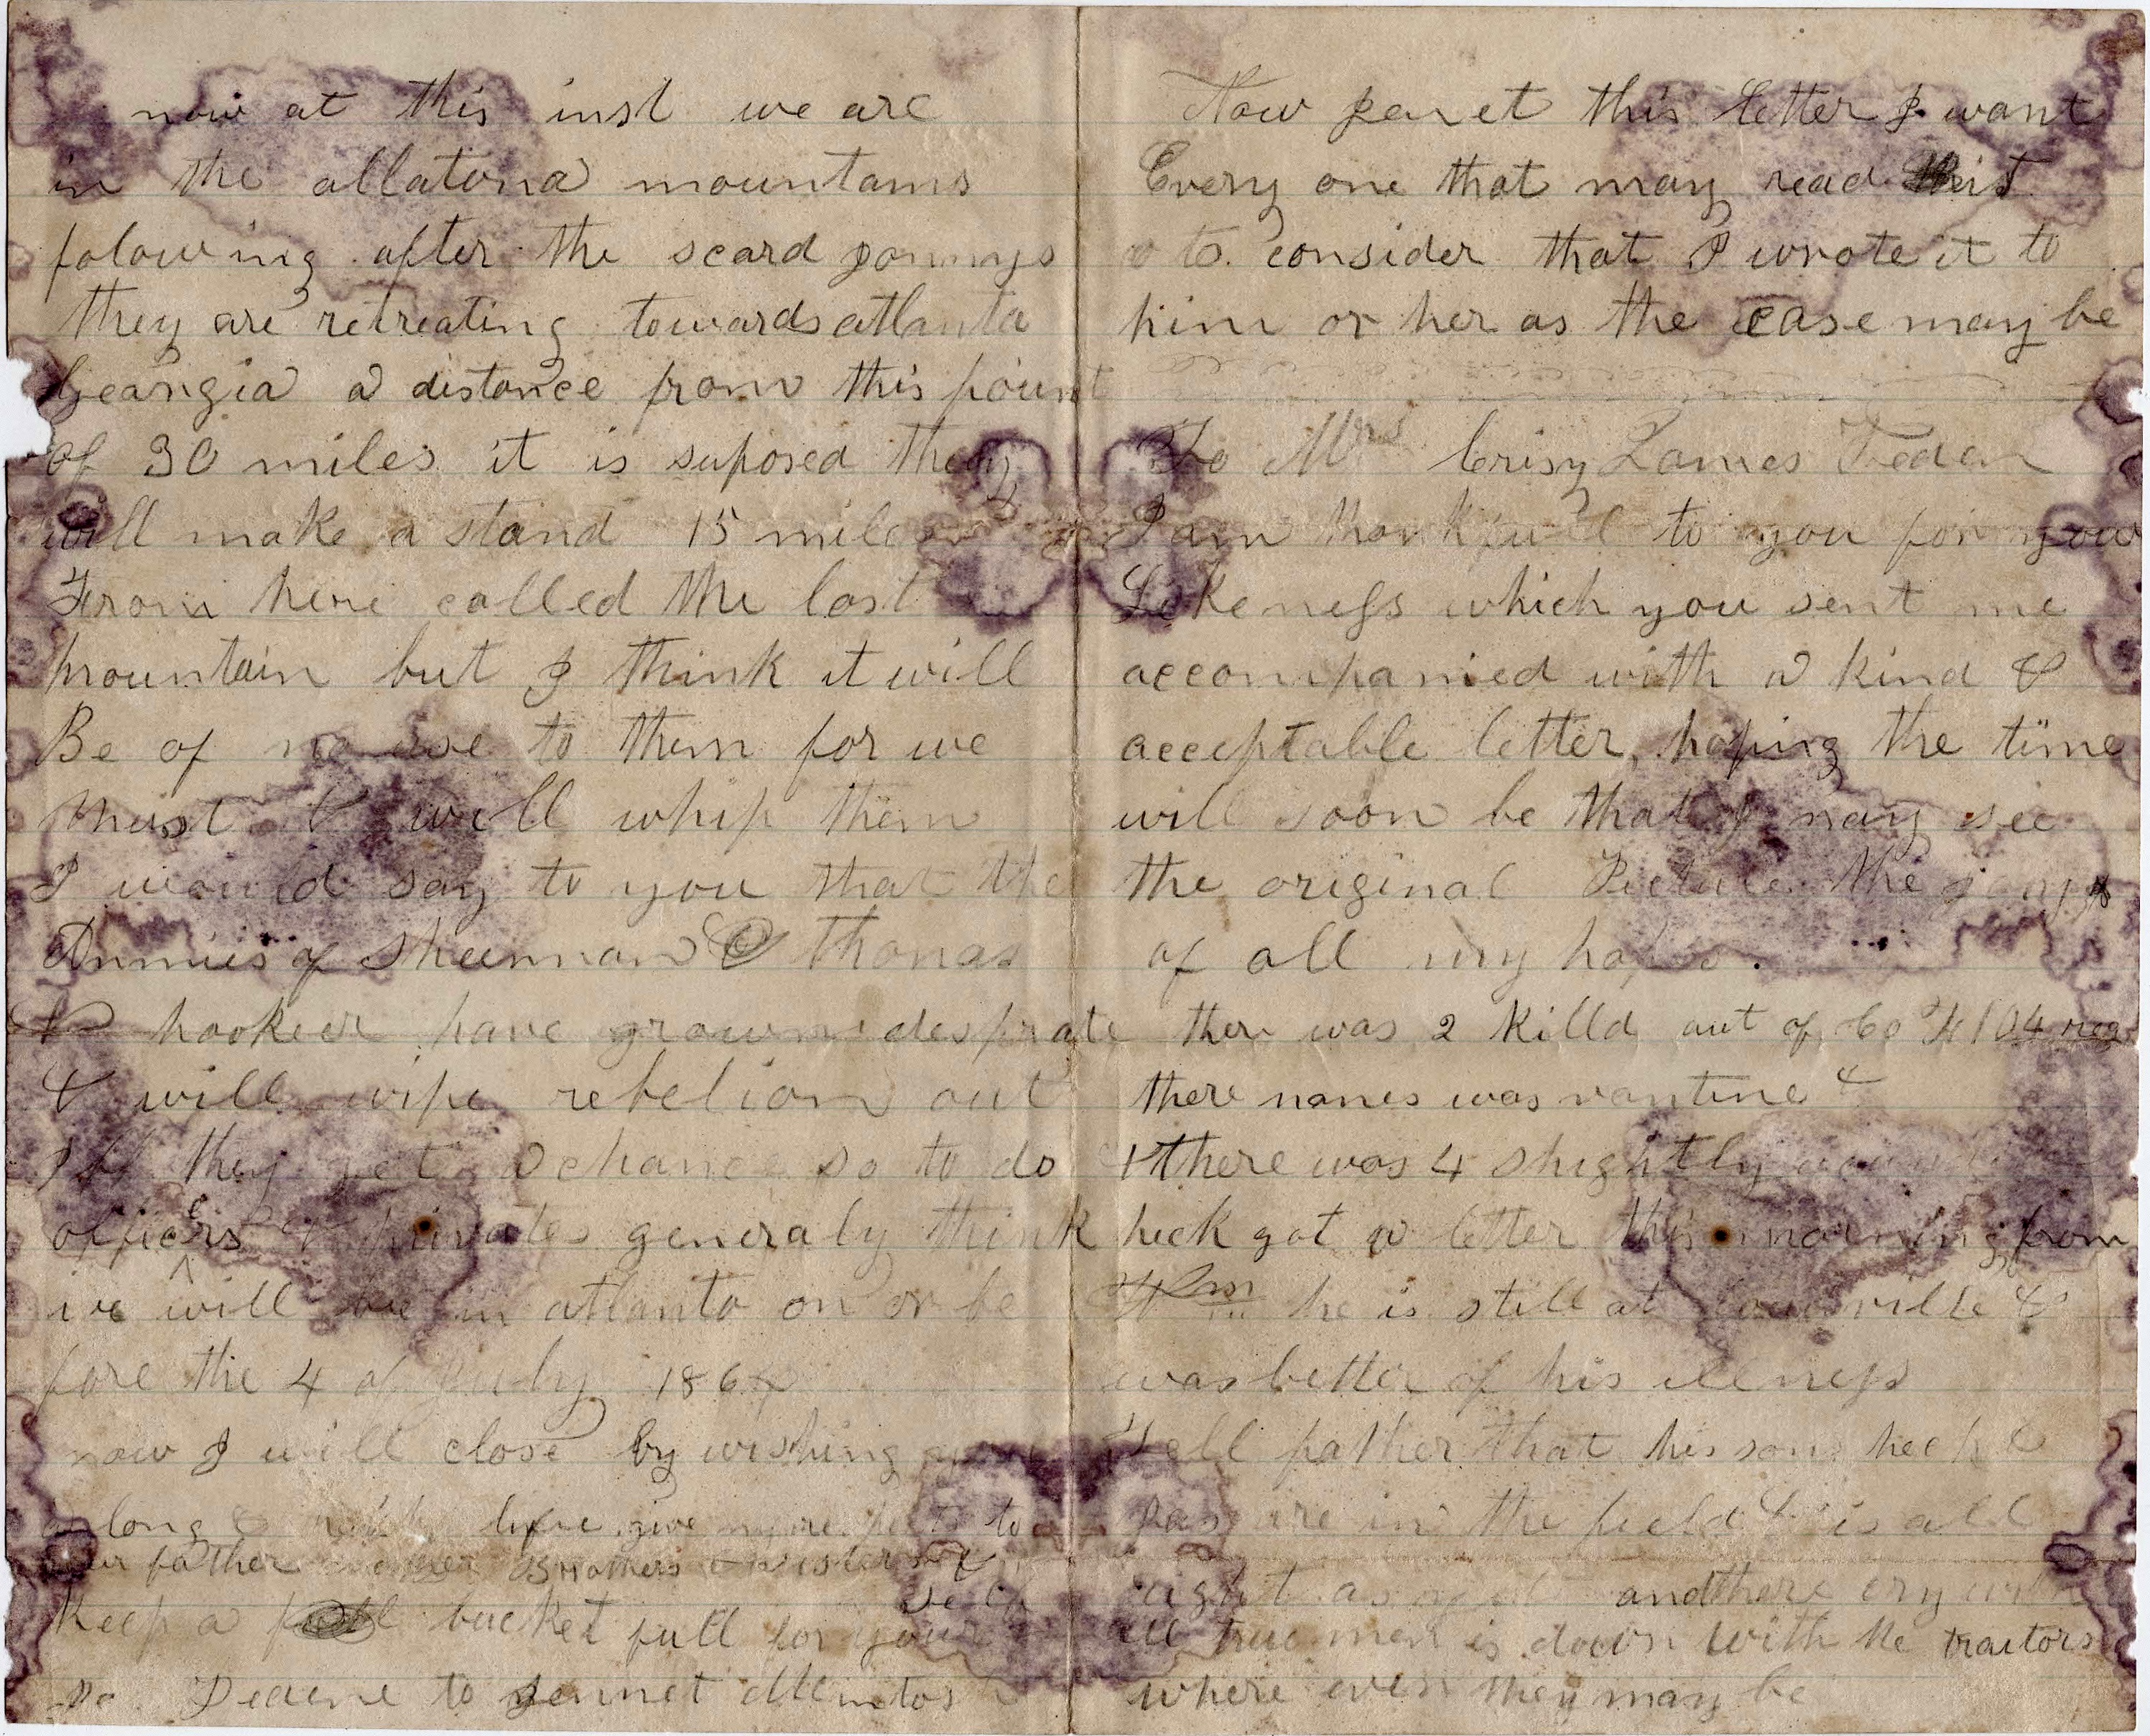 now at this inst we are
in the allatona mountains
folowing after the scard
they are retreating towards atlanta
Geargia a distance from this point
of 30 miles it is suposed they
will make a stand 15 miles
From here called the lost
mountain but I think it will
Be of no use to them for we
must & will whip them
I would say to you that the
Armies of Sheerman & thomas
& hookeer have grown desprate
& will wipe rebelion out
iff they get a chance so to do
officers & privates generaly think
we will be in atlanta on or be
fore the 4 of July 1864
now I will close by wishing you
a long & life give my respects to
your father mother Brothers & sisters &
keep a bucket full for your self
Deacne to jennet
Now jenet this letter I want
Every one that may read it
to consider that I wrote it to
him or her as the case may be
To Mrs Crisy
I am thankfull to you for your
Likeness which you sent me
accompanied with a kind &
acceptable letter, hoping the time
will soon be that I may see
the original Picture the joays
of all my hopes.
ther was 2 killd out of Co H 104 reg
there names was vantine &
& there was 4 shightly
heck got a letter this morning from
Wm he is still at louisville &
was better of his illness
Tell father that his sons heck &
are in the field & is all
right as yet and there cry with
all true men is down with the traitors
where ever they may be